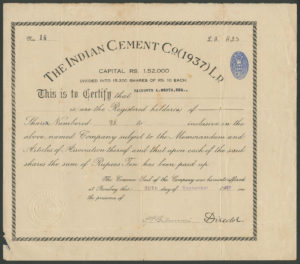 No. 14
THE INDIAN CEMENT CO (1937) LD.
CAPITAL RS. 1,52,000
DIVIDED INTO 15,200 SHARES OF RS. 10 EACH
This is to Certify that
is/are the Registered holder/s of
Shares Numbered to inclusive in the
above named Company subject to the Memorandum and
Articles of Association thereof and that upon each of the said
shares the sum of Rupees Ten has been paid up.
The Common Seal of the Company was hereunto affixed
at Bombay this day of 193
in the presence of
Director